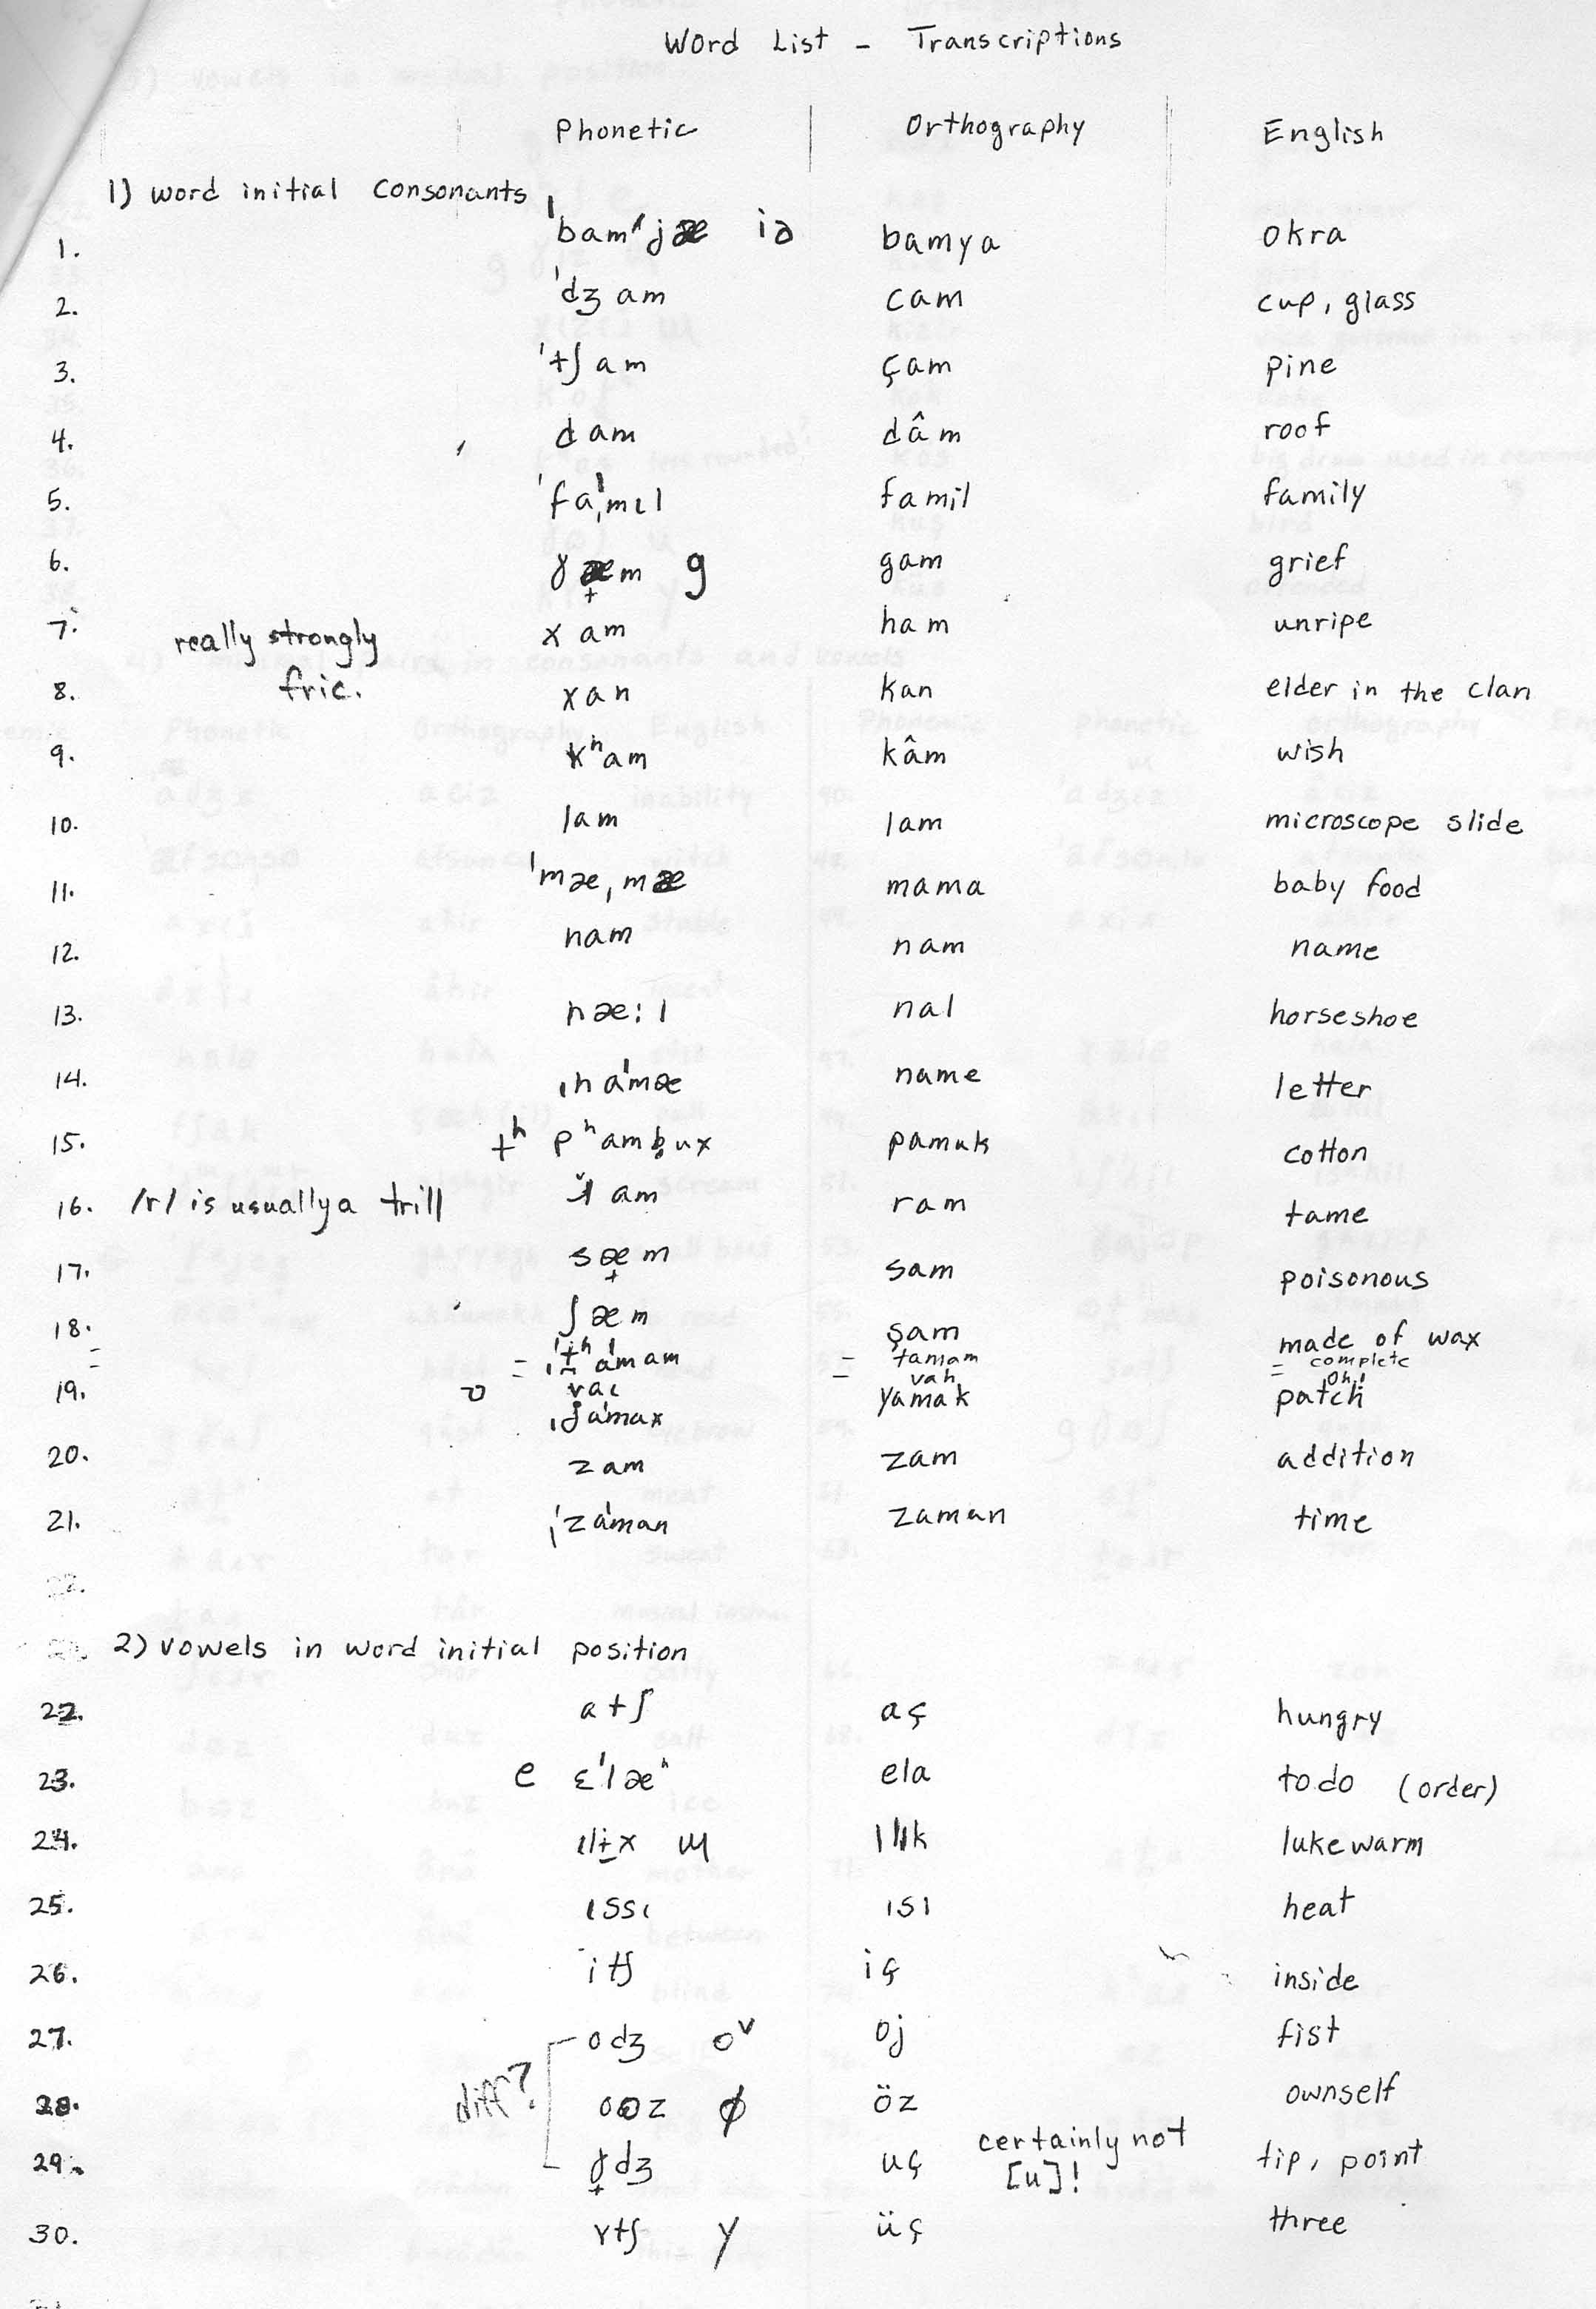 Word List - Transcriptions
Phonetic | Orthography | English
1) word initial consonants
1. ˈbamˈjæ iə bamya okra
2. ˈdʒam cam cup, glass
3. ˈtʃam çam pine
4. dam dâm roof
5. ˈfaˈmɪl famil family
6. ɣæ̟m g gam grief
7. xam ham unripe
really strongly
fric.
8. xan kan elder in the clan
9. kʰam kâm wish
10. lam lam microscope slide
11. ˈmæˌmæ mama baby food
12. nam nam name
13. næ:l nal horseshoe
14. ˌnaˈmæ name letter
15. tʰ pʰambux pamuk cotton
16. /r/ is usually a trill am ram tame
17. sæ̟m sam poisonous
18. ʃæm şam made of wax
= tʰamam = tamam = complete
ʋ vaɪ = vah oh!
19. ˌjaˈmax yamak patch
20. zam zam addition
21. ˌzaˈman zaman time
2) vowels in word initial position
22. atʃ aç hungry
23. e ɛˈlæʰ ela to do (order)
24. ɪlɨ̠x ɯ ılık lukewarm
25. ɪssɪ ısı heat
26. itʃ iç inside
27. odʒ oᵛ oj fist
28. oɵz ø öz ownself
diff?
29. ɣ̟dʒ uç certainly not tip, point
[u]!
30. ʏtʃ y üç three